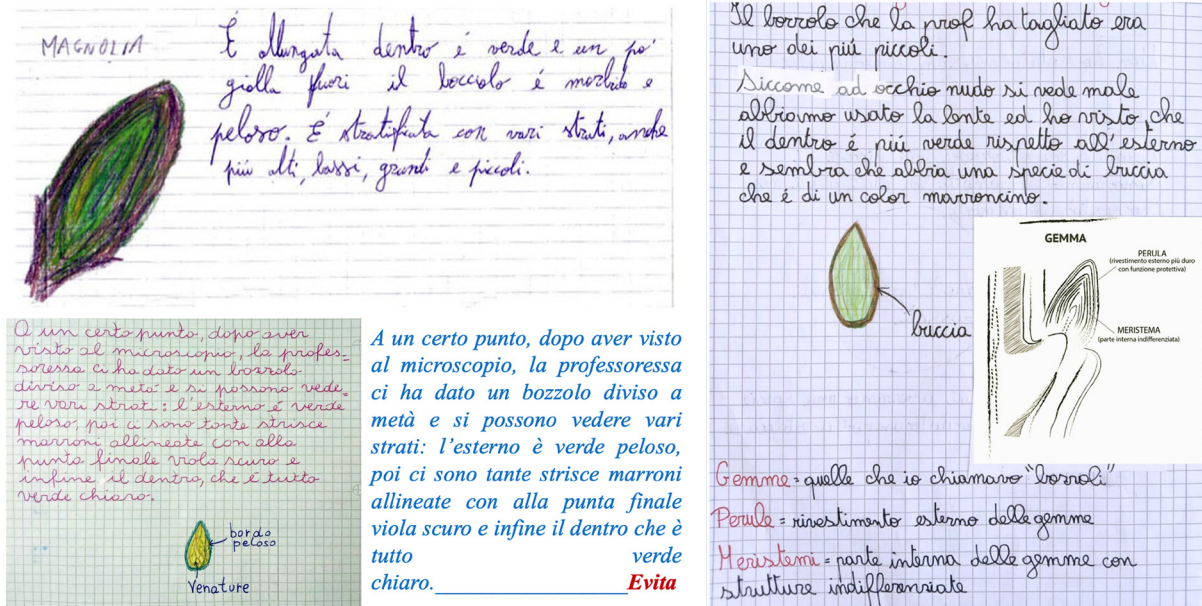 MAGNOLIA
É allungata dentro é verde e un po'
gialla fuori il bocciolo é morbido e
peloso. É stratificata con vari strati, anche
più alti, bassi, grandi e piccoli.
A un certo punto, dopo aver
visto al microscopio, la profes-
soressa ci ha dato un bozzolo
diviso a metà e si possono vede-
re vari strati: l'esterno é verde
peloso, poi ci sono tante strisce
marroni allineate con alla
punta finale viola scuro e
infine il dentro, che é tutto
verde chiaro.
bordo
peloso
Venature
A un certo punto, dopo aver visto
al microscopio, la professoressa
ci ha dato un bozzolo diviso a
metà e si possono vedere vari
strati: l'esterno è verde peloso,
poi ci sono tante strisce marroni
allineate con alla punta finale
viola scuro e infine il dentro che è
tutto verde
chiaro.___________________Evita
Il bozzolo che la prof ha tagliato era
uno dei piú piccoli.
Siccome ad occhio nudo si vede male
abbiamo usato la lente ed ho visto che
il dentro é piú verde rispetto all'esterno
e sembra che abbia una specie di buccia
che é di un color marroncino.
buccia
GEMMA
PERULA
(rivestimento esterno più duro
con funzione protettiva)
MERISTEMA
(parte interna indifferenziata)
Gemme = quelle che io chiamavo "bozzoli"
Perule = rivestimento esterno delle gemme
Meristemi = parte interna delle gemme con
strutture indifferenziate